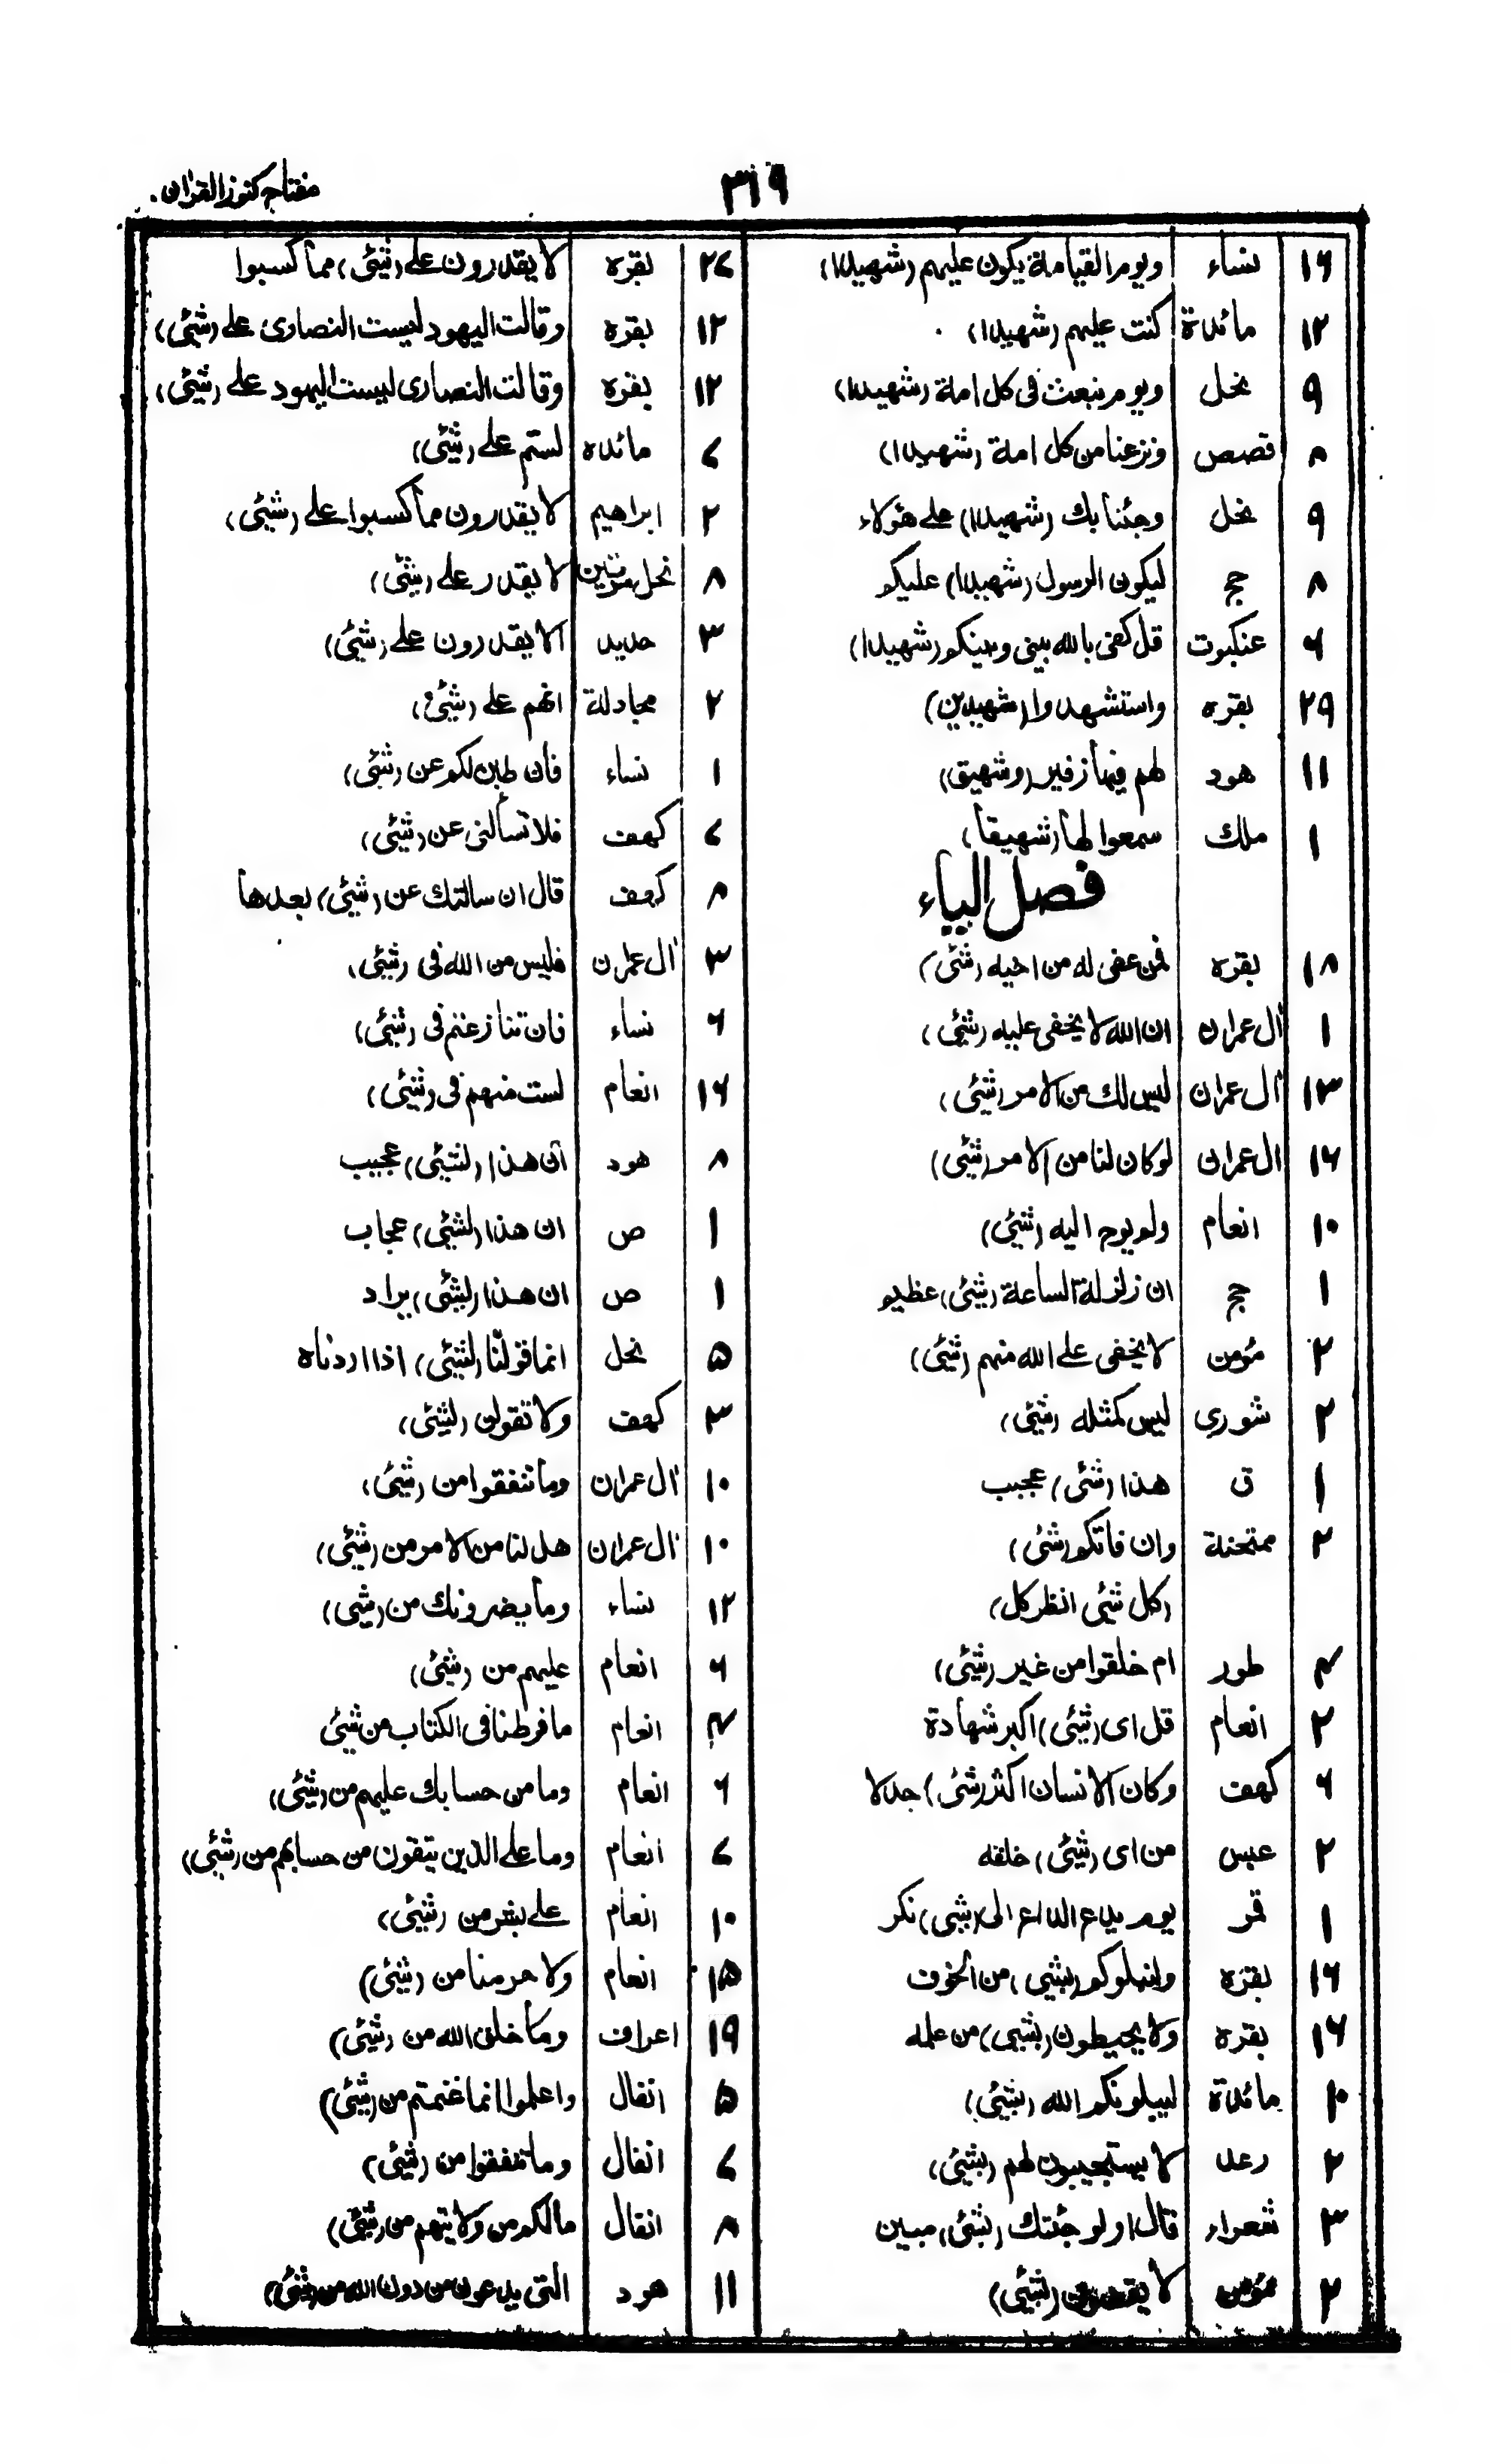 مفتاح كنوز القران
٣١٩
١٦ نساء ويوم القيامة يكون عليهم (شهيدا)
١٢ مائدة كنت عليهم (شهيدا)
٩ نحل ويوم نبعث فى كل امة (شهيدا)
٨ قصص ونزعنا من كل امة (شهيدا)
٩ نحل وجئنا بك (شهيدا) على هؤلاء
٨ حج ليكون الرسول (شهيدا) عليكم
٦ عنكبوت قل كفى بالله بينى وبينكم (شهيدا)
٢٩ بقره واستشهدوا (شهيدين)
١١ هود لهم فيها زفير (وشهيق)
١ ملك سمعوا لها (شهيقا)
فصل الياء
١٨ بقره فمن عفى له من اخيه (شئى)
١ ال عمران ان الله لا يخفى عليه (شئى)
١٣ ال عمران ليس لك من الامر (شئى)
١٦ ال عمران لو كان لنا من الامر (شئى)
١٠ انعام ولم يوح اليه (شئى)
١ حج ان زلزلة الساعة (شئى) عظيم
٢ مؤمن لا يخفى على الله منهم (شئى)
٢ شورى ليس كمثله (شئى)
١ ق هذا (شئى) عجيب
٢ ممتحنة وان فاتكم (شئى)
(كل شئى انظر كل)
٢ طور ام خلقوا من غير (شئى)
٢ انعام قل اى (شئى) اكبر شهادة
٦ كهف وكان الانسان اكثر (شئى) جدلا
٢ عبس من اى (شئى) خلقه
١ قمر يوم يدع الداع الى (شئى) نكر
١٦ بقره ولنبلوكم (بشئى) من الخوف
١٦ بقره ولا يحيطون (بشئى) من علمه
١٠ مائدة ليبلونكم الله (بشئى)
٢ رعد لا يستجيبون لهم (بشئى)
٣ شعراء قال اولو جئتك (بشئى) مبين
٢ مؤمن لا يقضون (بشئى)
٢٧ بقره لا يقدرون على (شئى) مما كسبوا
١٢ بقره وقالت اليهود ليست النصارى على (شئى)
١٢ بقره وقالت النصارى ليست اليهود على (شئى)
٧ مائده لستم على (شئى)
٢ ابراهيم لا يقدرون مما كسبوا على (شئى)
٨ نحل مرتين لا يقدر على (شئى)
٣ حديد الا يقدرون على (شئى)
٢ مجادلة انهم على (شئى)
١ نساء فان طبن لكم عن (شئى)
٧ كهف فلا تسألنى عن (شئى)
٨ كهف قال ان سالتك عن (شئى) بعدها
٣ ال عمران فليس من الله فى (شئى)
٦ نساء فان تنازعتم فى (شئى)
١٦ انعام لست منهم فى (شئى)
٨ هود ان هذا (لشئى) عجيب
١ ص ان هذا (لشئى) عجاب
١ ص ان هذا (لشئى) يراد
٥ نحل انما قولنا (لشئى) اذا اردناه
٣ كهف ولا تقولن (لشئى)
١٠ ال عمران وما تنفقوا من (شئى)
١٠ ال عمران هل لنا من الامر من (شئى)
١٢ نساء وما يضرونك من (شئى)
٦ انعام عليهم من (شئى)
٤ انعام ما فرطنا فى الكتاب من شئى
٦ انعام وما من حسابك عليهم من (شئى)
٧ انعام وما على الذين يتقون من حسابهم من (شئى)
١٠ انعام على بشر من (شئى)
١٥ انعام ولا حرمنا من (شئى)
١٩ اعراف وما خلق الله من (شئى)
٥ انفال واعلموا انما غنمتم من (شئى)
٧ انفال وما تنفقوا من (شئى)
٨ انفال مالكم من ولايتهم من (شئى)
١١ هود التى يدعون من دون الله من (شئى)